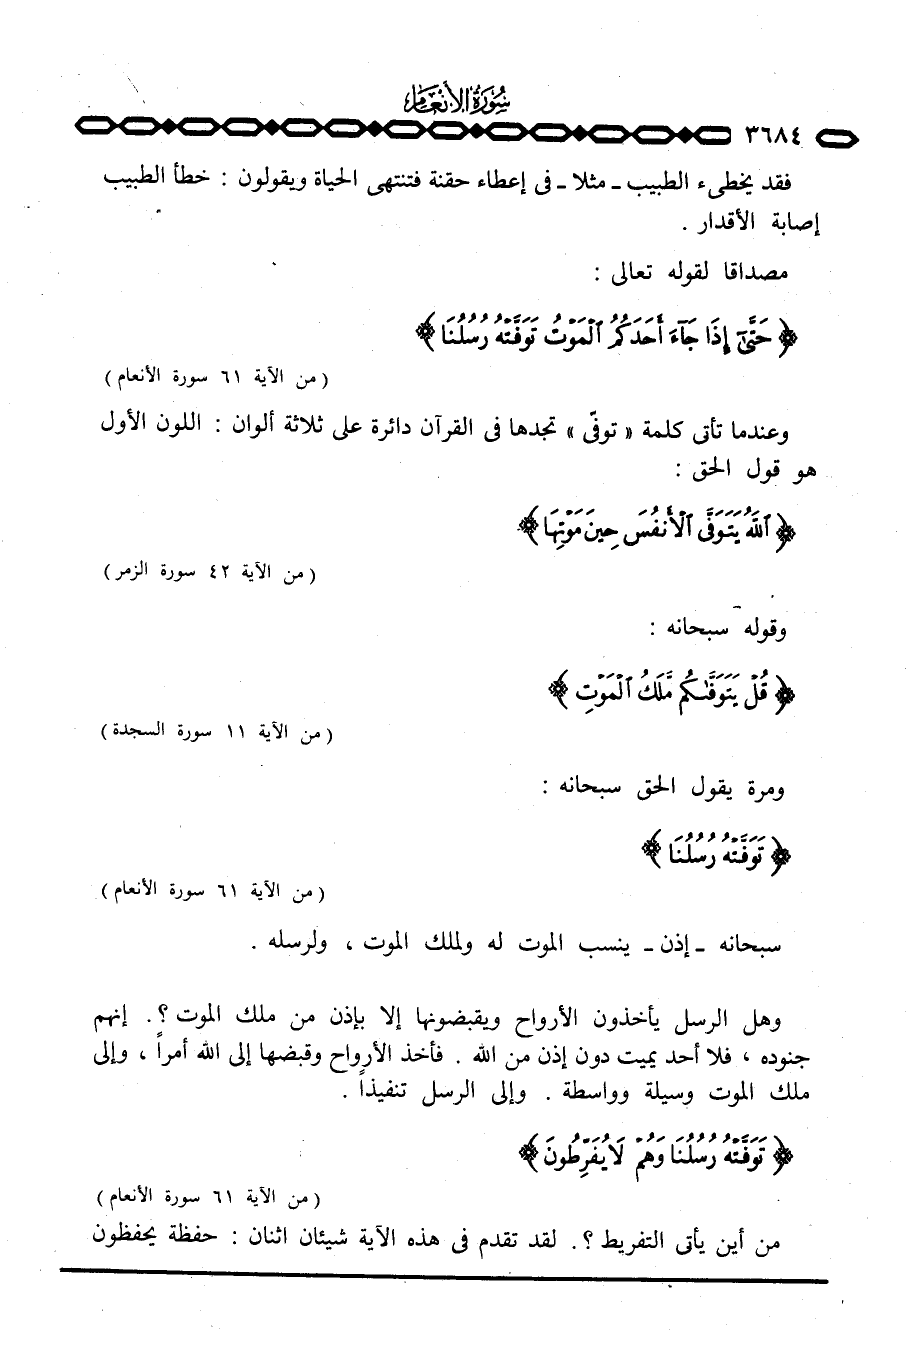 سورة الأنعام
٣٦٨٤
فقد يخطىء الطبيب ـ مثلا ـ فى إعطاء حقنة فتنتهى الحياة ويقولون : خطأ الطبيب
إصابة الأقدار .
مصداقا لقوله تعالى :
﴿ حَتَّىٰٓ إِذَا جَآءَ أَحَدَكُمُ ٱلْمَوْتُ تَوَفَّتْهُ رُسُلُنَا ﴾
( من الآية ٦١ سورة الأنعام )
وعندما تأتى كلمة « توفّى » تجدها فى القرآن دائرة على ثلاثة ألوان : اللون الأول
هو قول الحق :
﴿ ٱللَّهُ يَتَوَفَّى ٱلْأَنفُسَ حِينَ مَوْتِهَا ﴾
( من الآية ٤٢ سورة الزمر )
وقوله سبحانه :
﴿ قُلْ يَتَوَفَّىٰكُم مَّلَكُ ٱلْمَوْتِ ﴾
( من الآية ١١ سورة السجدة )
ومرة يقول الحق سبحانه :
﴿ تَوَفَّتْهُ رُسُلُنَا ﴾
( من الآية ٦١ سورة الأنعام )
سبحانه ـ إذن ـ ينسب الموت له ولملك الموت ، ولرسله .
وهل الرسل يأخذون الأرواح ويقبضونها إلا بإذن من ملك الموت ؟. إنهم
جنوده ، فلا أحد يميت دون إذن من الله . فأخذ الأرواح وقبضها إلى الله أمراً ، وإلى
ملك الموت وسيلة وواسطة . وإلى الرسل تنفيذاً .
﴿ تَوَفَّتْهُ رُسُلُنَا وَهُمْ لَا يُفَرِّطُونَ ﴾
( من الآية ٦١ سورة الأنعام )
من أين يأتى التفريط ؟. لقد تقدم فى هذه الآية شيئان اثنان : حفظة يحفظون